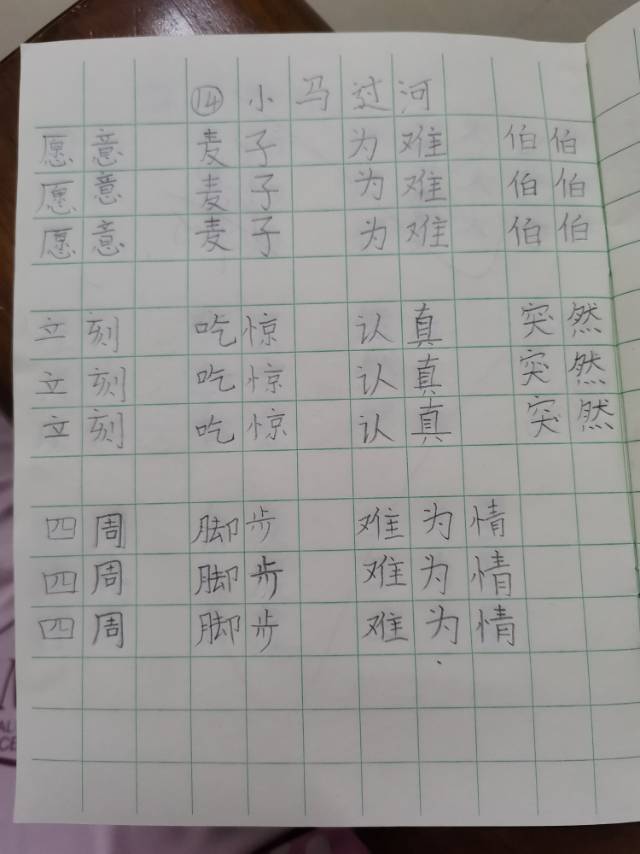 ⑭小马过河
愿意 麦子 为难 伯伯
愿意 麦子 为难 伯伯
愿意 麦子 为难 伯伯
立刻 吃惊 认真 突然
立刻 吃惊 认真 突然
立刻 吃惊 认真 突然
四周 脚步 难为情
四周 脚步 难为情
四周 脚步 难为情